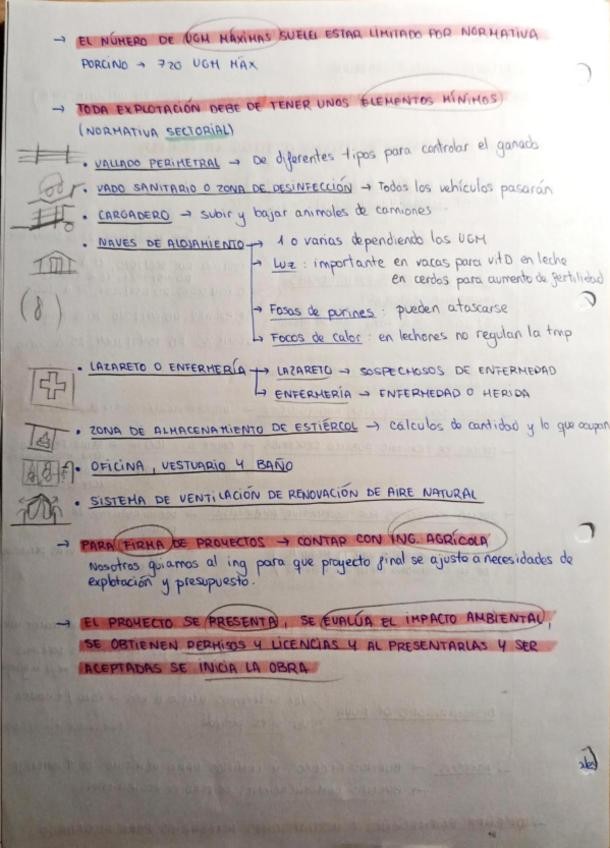 → EL NÚMERO DE UGM MÁXIMAS SUELE ESTAR LIMITADO POR NORMATIVA
PORCINO → 720 UGM MÁX
→ TODA EXPLOTACIÓN DEBE DE TENER UNOS ELEMENTOS MÍNIMOS
(NORMATIVA SECTORIAL)
• VALLADO PERIMETRAL → De diferentes tipos para controlar el ganado
• VADO SANITARIO O ZONA DE DESINFECCIÓN → Todos los vehículos pasarán
• CARGADERO → subir y bajar animales de camiones
• NAVES DE ALOJAMIENTO → 1 o varias dependiendo las UGM
→ Luz : importante en vacas para vitD en leche
en cerdos para aumento de fertilidad
(8)
→ Fosas de purines : pueden atascarse
→ Focos de calor : en lechones no regulan la tmp
• LAZARETO O ENFERMERÍA → LAZARETO → SOSPECHOSOS DE ENFERMEDAD
→ ENFERMERÍA → ENFERMEDAD O HERIDA
• ZONA DE ALMACENAMIENTO DE ESTIÉRCOL → cálculos de cantidad y lo que ocupan
• OFICINA, VESTUARIO Y BAÑO
• SISTEMA DE VENTILACIÓN DE RENOVACIÓN DE AIRE NATURAL
→ PARA FIRMA DE PROYECTOS → CONTAR CON ING. AGRÍCOLA
Nosotros guiamos al ing para que proyecto final se ajusto a necesidades de
explotación y presupuesto.
→ EL PROYECTO SE PRESENTA, SE EVALÚA EL IMPACTO AMBIENTAL,
SE OBTIENEN PERMISOS Y LICENCIAS Y AL PRESENTARLAS Y SER
ACEPTADAS SE INICIA LA OBRA